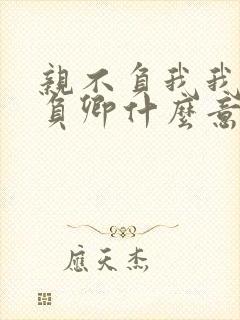 親不負我我
負卿什麼意
應天杰